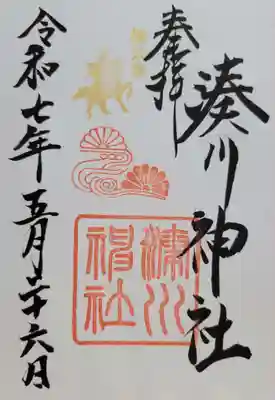 奉拝
湊川神社
湊川
神社
令和七年五月二十六日